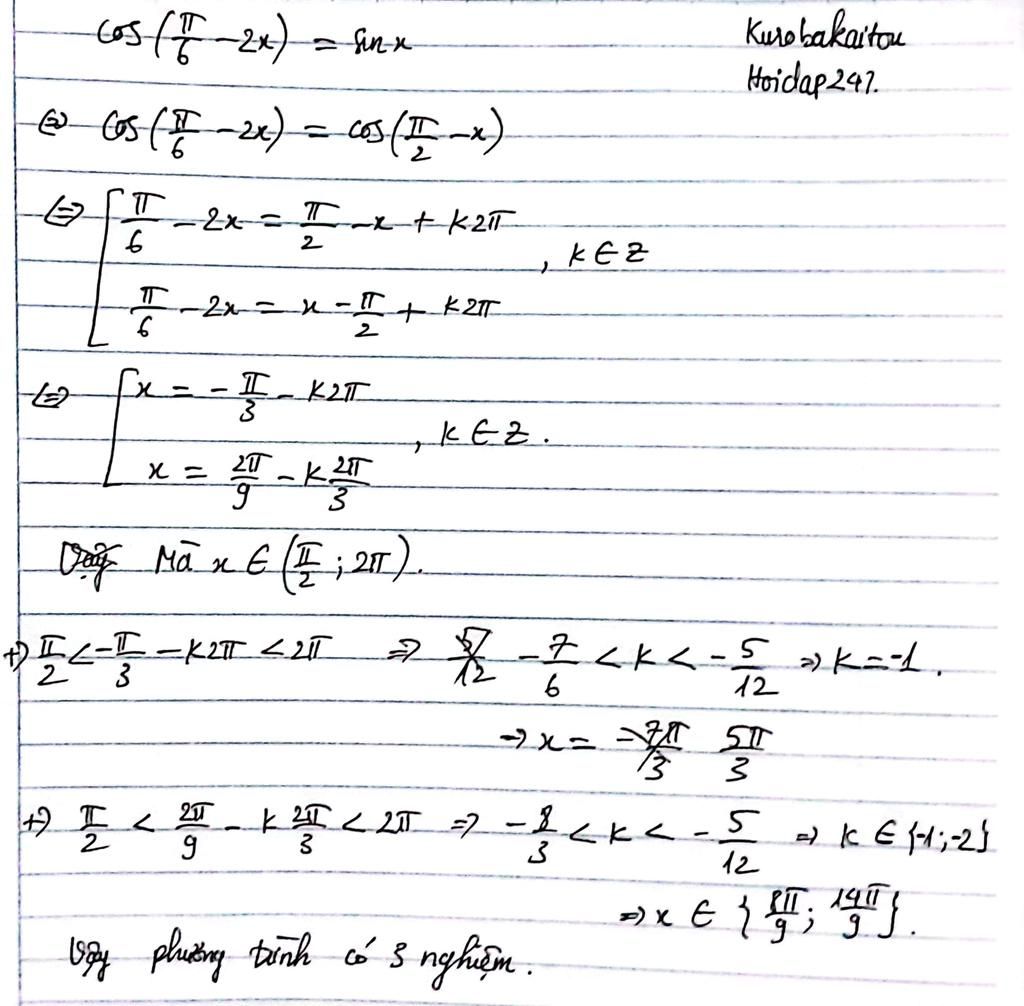 cos(π/6 - 2x) = sin x
Kurobakaitou
Hoidap247.
⇔ cos(π/6 - 2x) = cos(π/2 - x)
⇔ [ π/6 - 2x = π/2 - x + k2π
, k ∈ Z
π/6 - 2x = x - π/2 + k2π
⇔ [ x = -π/3 - k2π
, k ∈ Z.
x = 2π/9 - k 2π/3
Mà x ∈ (π/2 ; 2π).
+) π/2 < -π/3 - k2π < 2π ⇒ -7/6 < k < -5/12 ⇒ k = -1.
→ x = 5π/3
+) π/2 < 2π/9 - k 2π/3 < 2π ⇒ -8/3 < k < -5/12 ⇒ k ∈ {-1;-2}
⇒ x ∈ {8π/9; 14π/9}.
Vậy phương trình có 3 nghiệm.